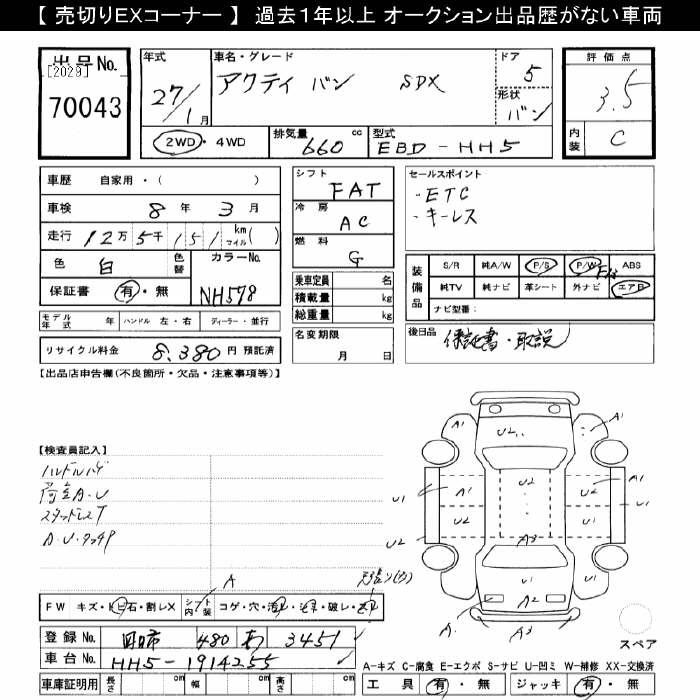 【 売切りEXコーナー 】 過去１年以上 オークション出品歴がない車両
出品No.
[2029]
70043
年式
27/1月
車名・グレード
アクティ バン SDX
ドア
5
形状
バン
評価点
3.5
内装
C
2WD・4WD
排気量
660cc
型式
EBD-HH5
車歴 自家用・( )
車検 8年 3月
走行 12万5千151km マイル( )
色 白 色替
カラーNo.
NH578
保証書 有・無
モデル年式 年 ハンドル 左・右 ディーラー・並行
リサイクル料金 8,380円 預託済
シフト
FAT
冷房
AC
燃料
G
乗車定員 名
積載量 kg
総重量 kg
名変期限
月 日
セールスポイント
・ETC
・キーレス
装備品
S/R 純A/W P/S P/W ABS
純TV 純ナビ 革シート 外ナビ エアB
ナビ型番:
後日品
保証書・取説
【出品店申告欄(不良箇所・欠品・注意事項等)】
【検査員記入】
スタッドレスT
FW キズ・トビ石・割レX
シフト内装
A
コゲ・穴・汚レ・シミ・破レ・スレ
登録No. 四日市 480 あ 3451
車台No. HH5-1914255
車庫証明用 長さ cm 幅 cm 高さ cm
A1
U2
A1
U1
A1
U2
A1
U1
U2
U2
U2
U1
A3
U1
U1
A
A3
スペア
A-キズ C-腐食 E-エクボ S-サビ U-凹ミ W-補修 XX-交換済
工具 有・無 ジャッキ 有・無